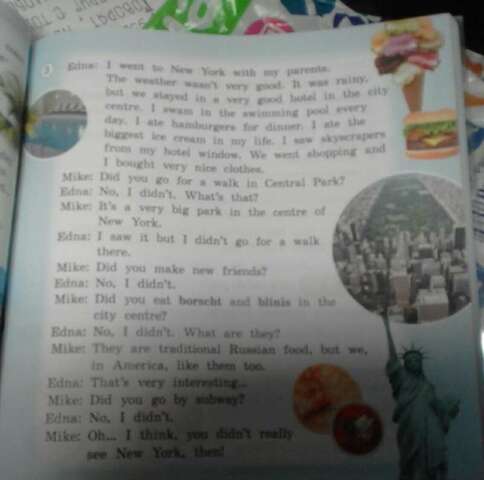 3 Edna: I went to New York with my parents.
The weather wasn't very good. It was rainy,
but we stayed in a very good hotel in the city
centre. I swam in the swimming pool every
day. I ate hamburgers for dinner. I ate the
biggest ice cream in my life. I saw skyscrapers
from my hotel window. We went shopping and
I bought very nice clothes.
Mike: Did you go for a walk in Central Park?
Edna: No, I didn't. What's that?
Mike: It's a very big park in the centre of
New York.
Edna: I saw it but I didn't go for a walk
there.
Mike: Did you make new friends?
Edna: No, I didn't.
Mike: Did you eat borscht and blinis in the
city centre?
Edna: No, I didn't. What are they?
Mike: They are traditional Russian food, but we,
in America, like them too.
Edna: That's very interesting...
Mike: Did you go by subway?
Edna: No, I didn't.
Mike: Oh... I think, you didn't really
see New York, then!